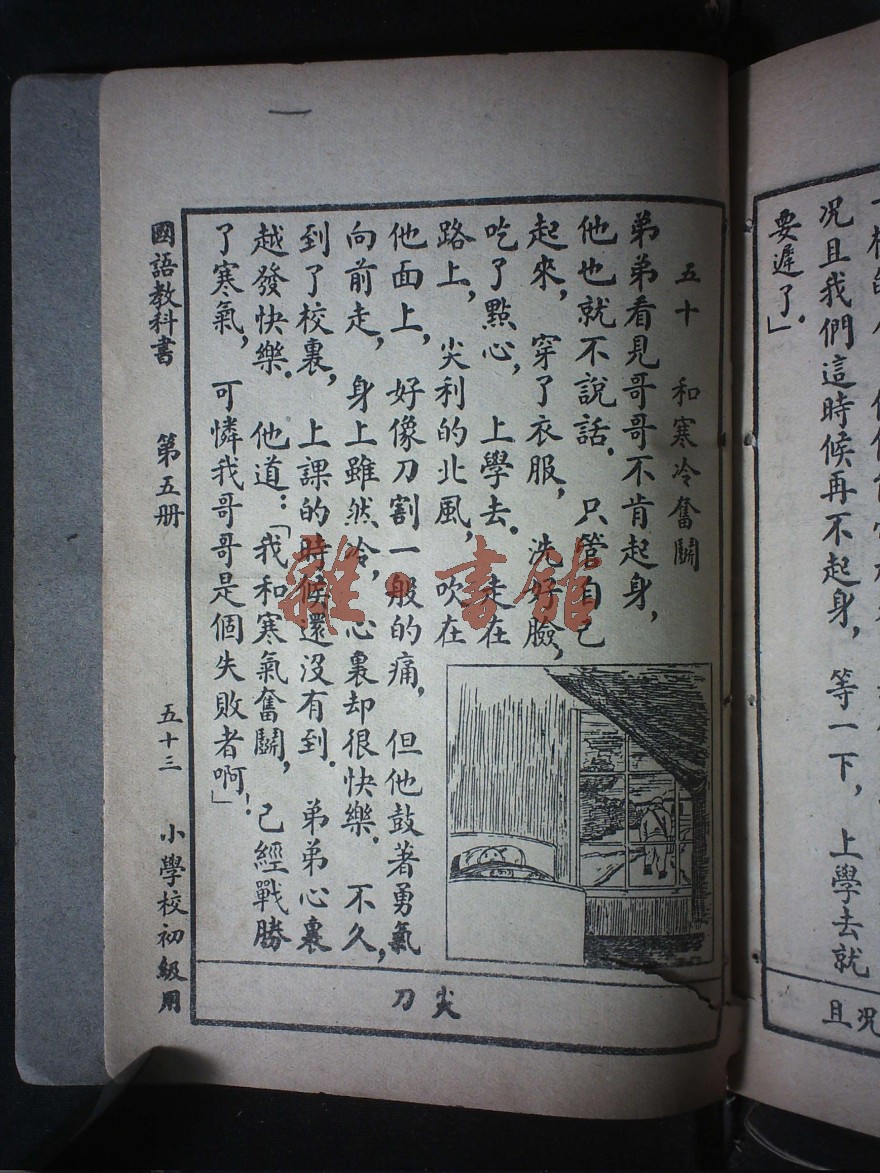 況且我們這時候再不起身，等一下，上學去就
要遲了。」
況且
五十　和寒冷奮鬬
弟弟看見哥哥不肯起身，
他也就不說話。只管自己
起來，穿了衣服，洗好臉，
吃了點心，上學去。走在
路上，尖利的北風，吹在
他面上，好像刀割一般的痛，但他鼓著勇氣，
向前走，身上雖然冷，心裏却很快樂。不久，
到了校裏，上課的時候還沒有到。弟弟心裏
越發快樂。他道：「我和寒氣奮鬬，已經戰勝
了寒氣，可憐我哥哥是個失敗者啊！」
尖刀
國語教科書　第五册　五十三　小學校初級用
雜·書館